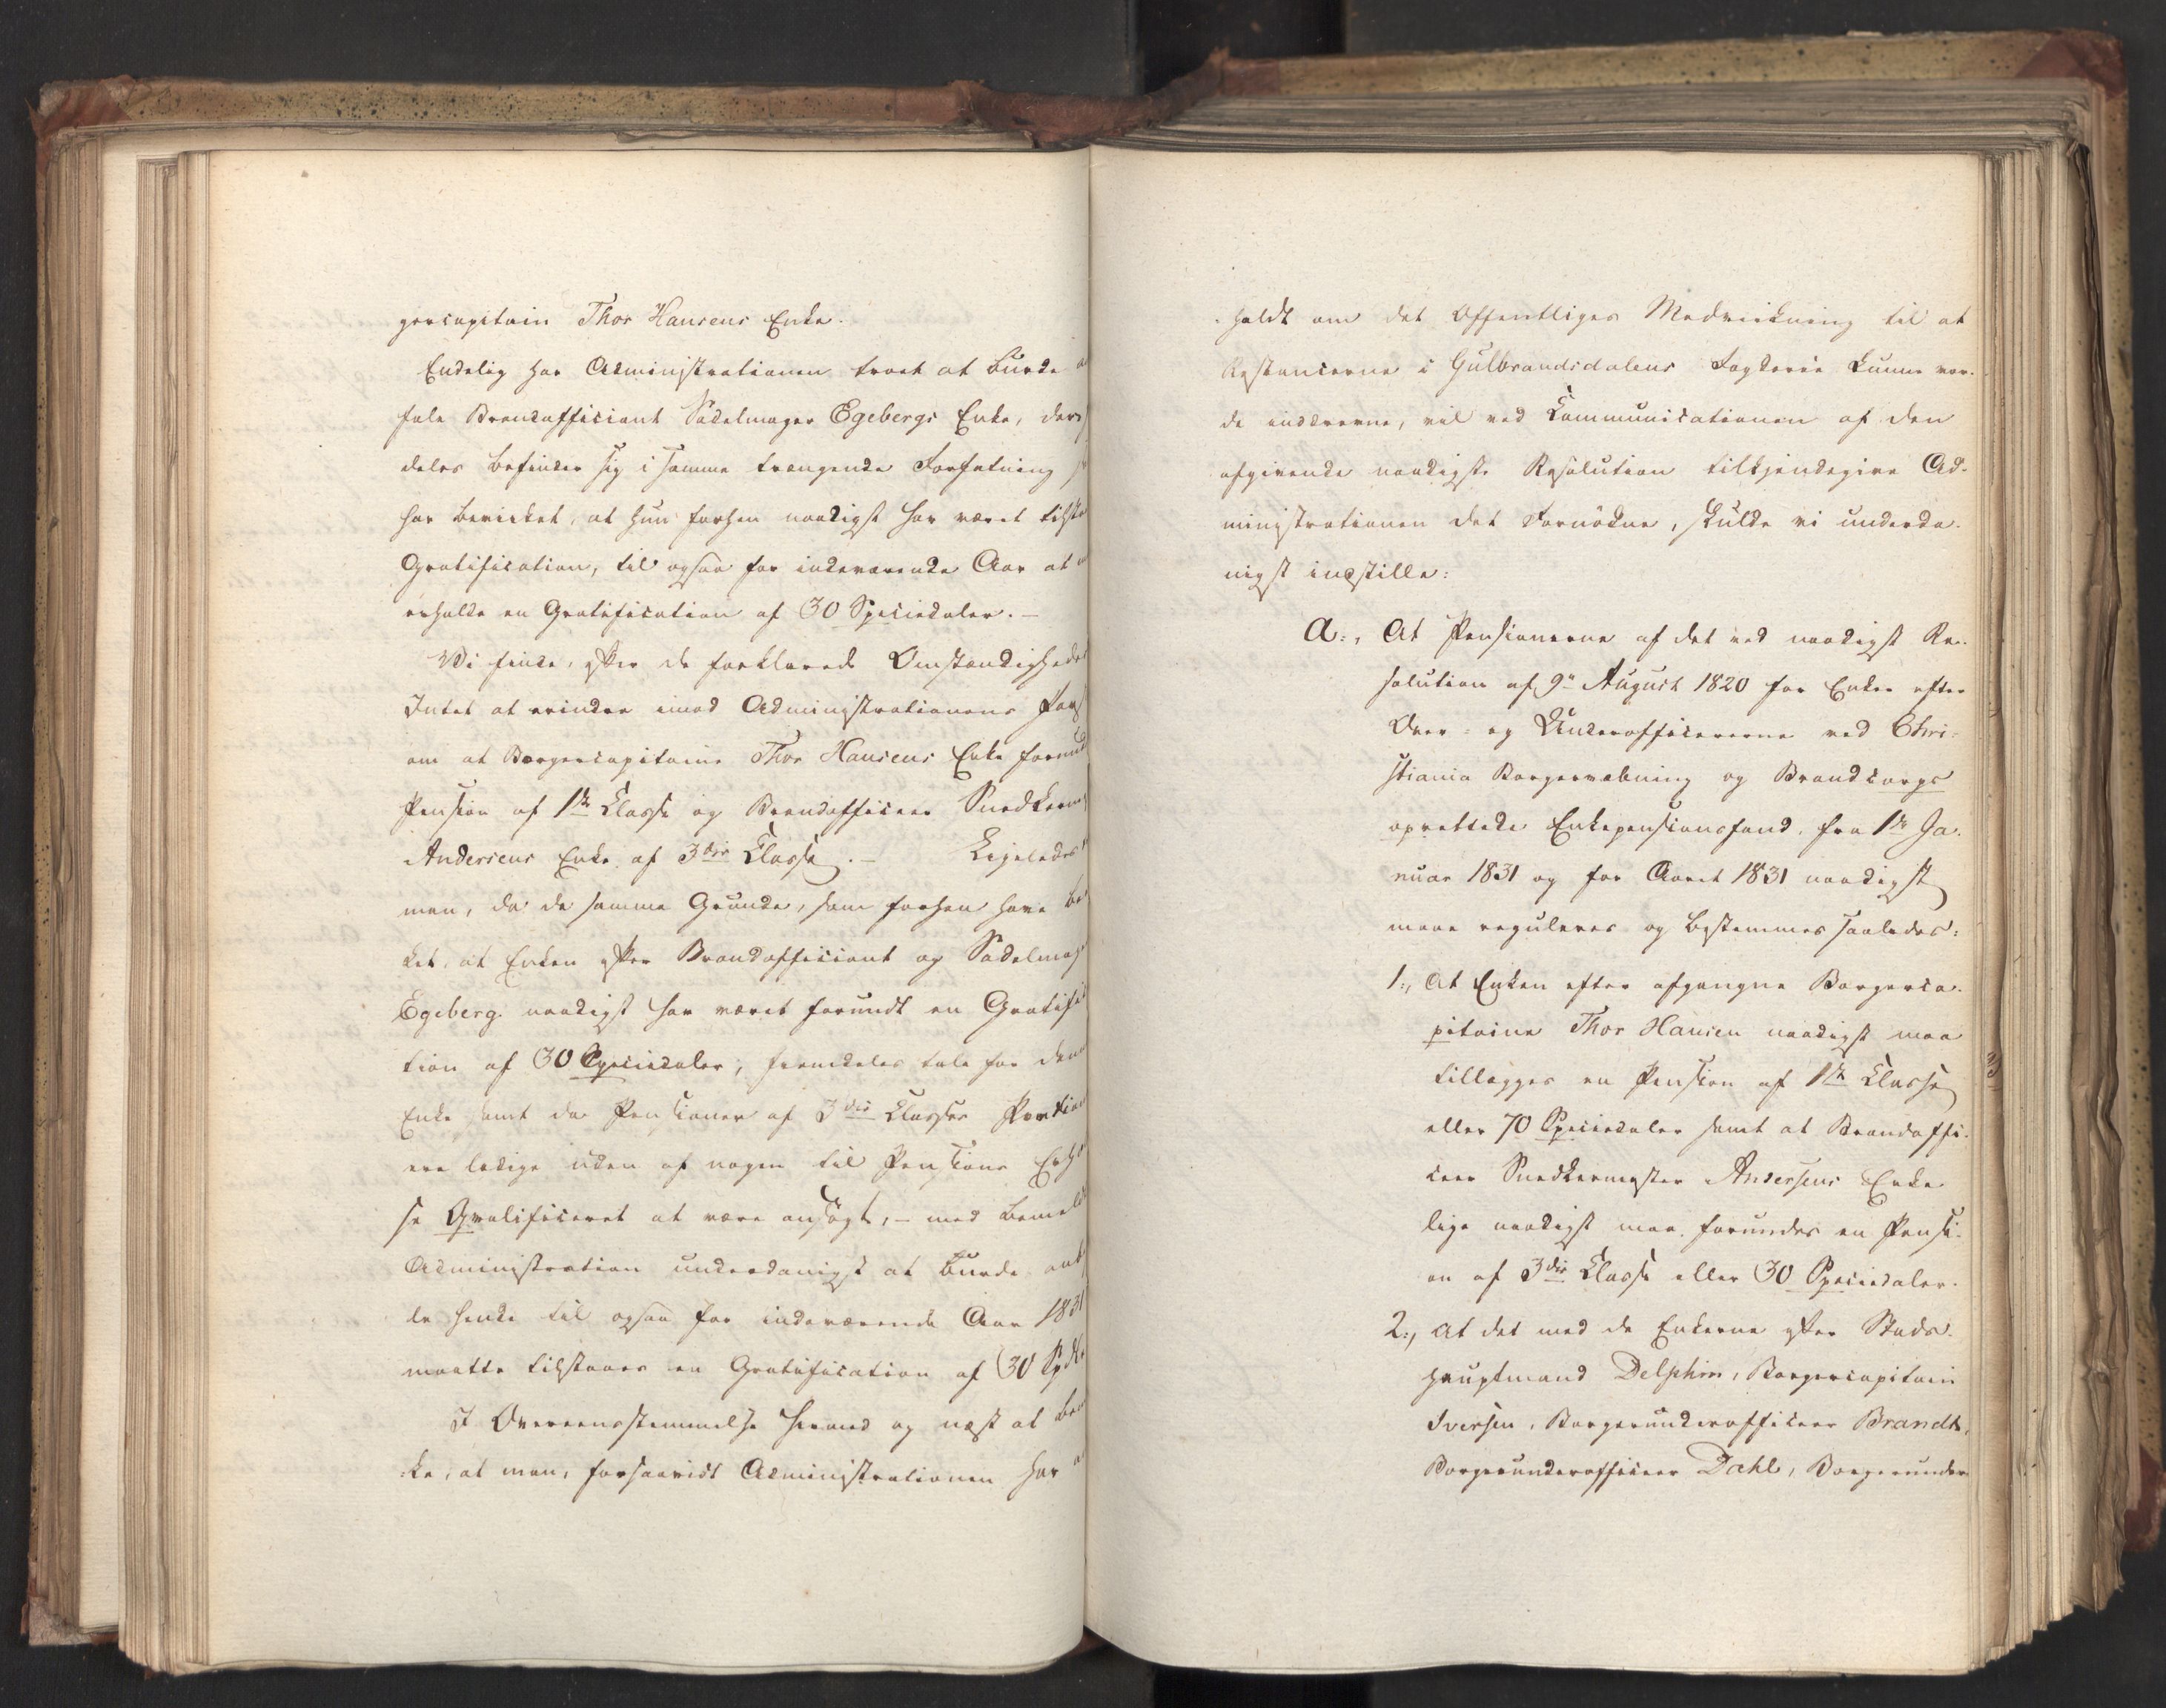 gercapitain Thor Hansens Enke.
Endelig har Administrationen troet at burde
fale Brandofficiant Sadelmager Egebergs Enke, der
deles befinder sig i samme trængende Forfatning
har bevirket, at hun forhen naadigst har været tilst
Gratification, til ogsaa for indeværende Aar at
erholde en Gratification af 30 Speciedaler. –
Vi finde, efter de forklarede Omstændighede
Intet at erindre imod Administrationens For
om at Borgercapitaine Thor Hansens Enke forund
Pension af 1ste Classe og Brandofficeer Snedkerm
Andersens Enke af 3die Classe. – Ligeledes
man, da de samme Grunde, som forhen have be
ket, at Enken efter Brandofficiant og Sadelmag
Egeberg naadigst har været forundt en Gratifi
tion af 30 Speciedaler, fremdeles tale for den
Enke, samt da Pensioner af 3die Classes Portion
ere ledige uden af nogen til Pensions Erh
se Qvalificeret at være ansøgt, – med bemeld
Administration underdanigst at burde
le hende til ogsaa for indeværende Aar 1831
maatte tilstaaes en Gratification af 30 Spd
I Overeensstemmelse hermed og næst at bem
ke, at man, forsaavidt Administrationen har
holdt om det Offentliges Medvirkning til at
Restancerne i Gulbrandsdalens Fogderie kunne vor-
de inddrevne, vil ved Communicationen af den
afgivende naadigste Resolution tilkjendegive Ad-
ministrationen det Fornödne, skulde vi underda-
nigst indstille:
A:, At Pensionerne af det ved naadigst Re-
solution af 9de August 1820 for Enker efter
Over- og Underofficererne ved Chri-
stiania Borgervæbning og Brandcorps
oprettede Enkepensionsfond, fra 1ste Ja-
nuar 1831 og for Aaret 1831 naadigst
maae reguleres og bestemmes saaledes:
1:, At Enken efter afgangne Borgerca-
pitaine Thor Hansen naadigst maa
tillægges en Pension af 1ste Classe
eller 70 Speciedaler samt at Brandoffi-
ceer Snedkermester Andersens Enke
lige naadigst maa forundes en Pensi-
on af 3die Classe eller 30 Speciedaler.
2:, At det med de Enkerne efter Stads-
hauptmand Delphin, Borgercapitain
Iversen, Borgerunderofficeer Brandt,
Borgerunderofficeer Dahl, Borgerunder